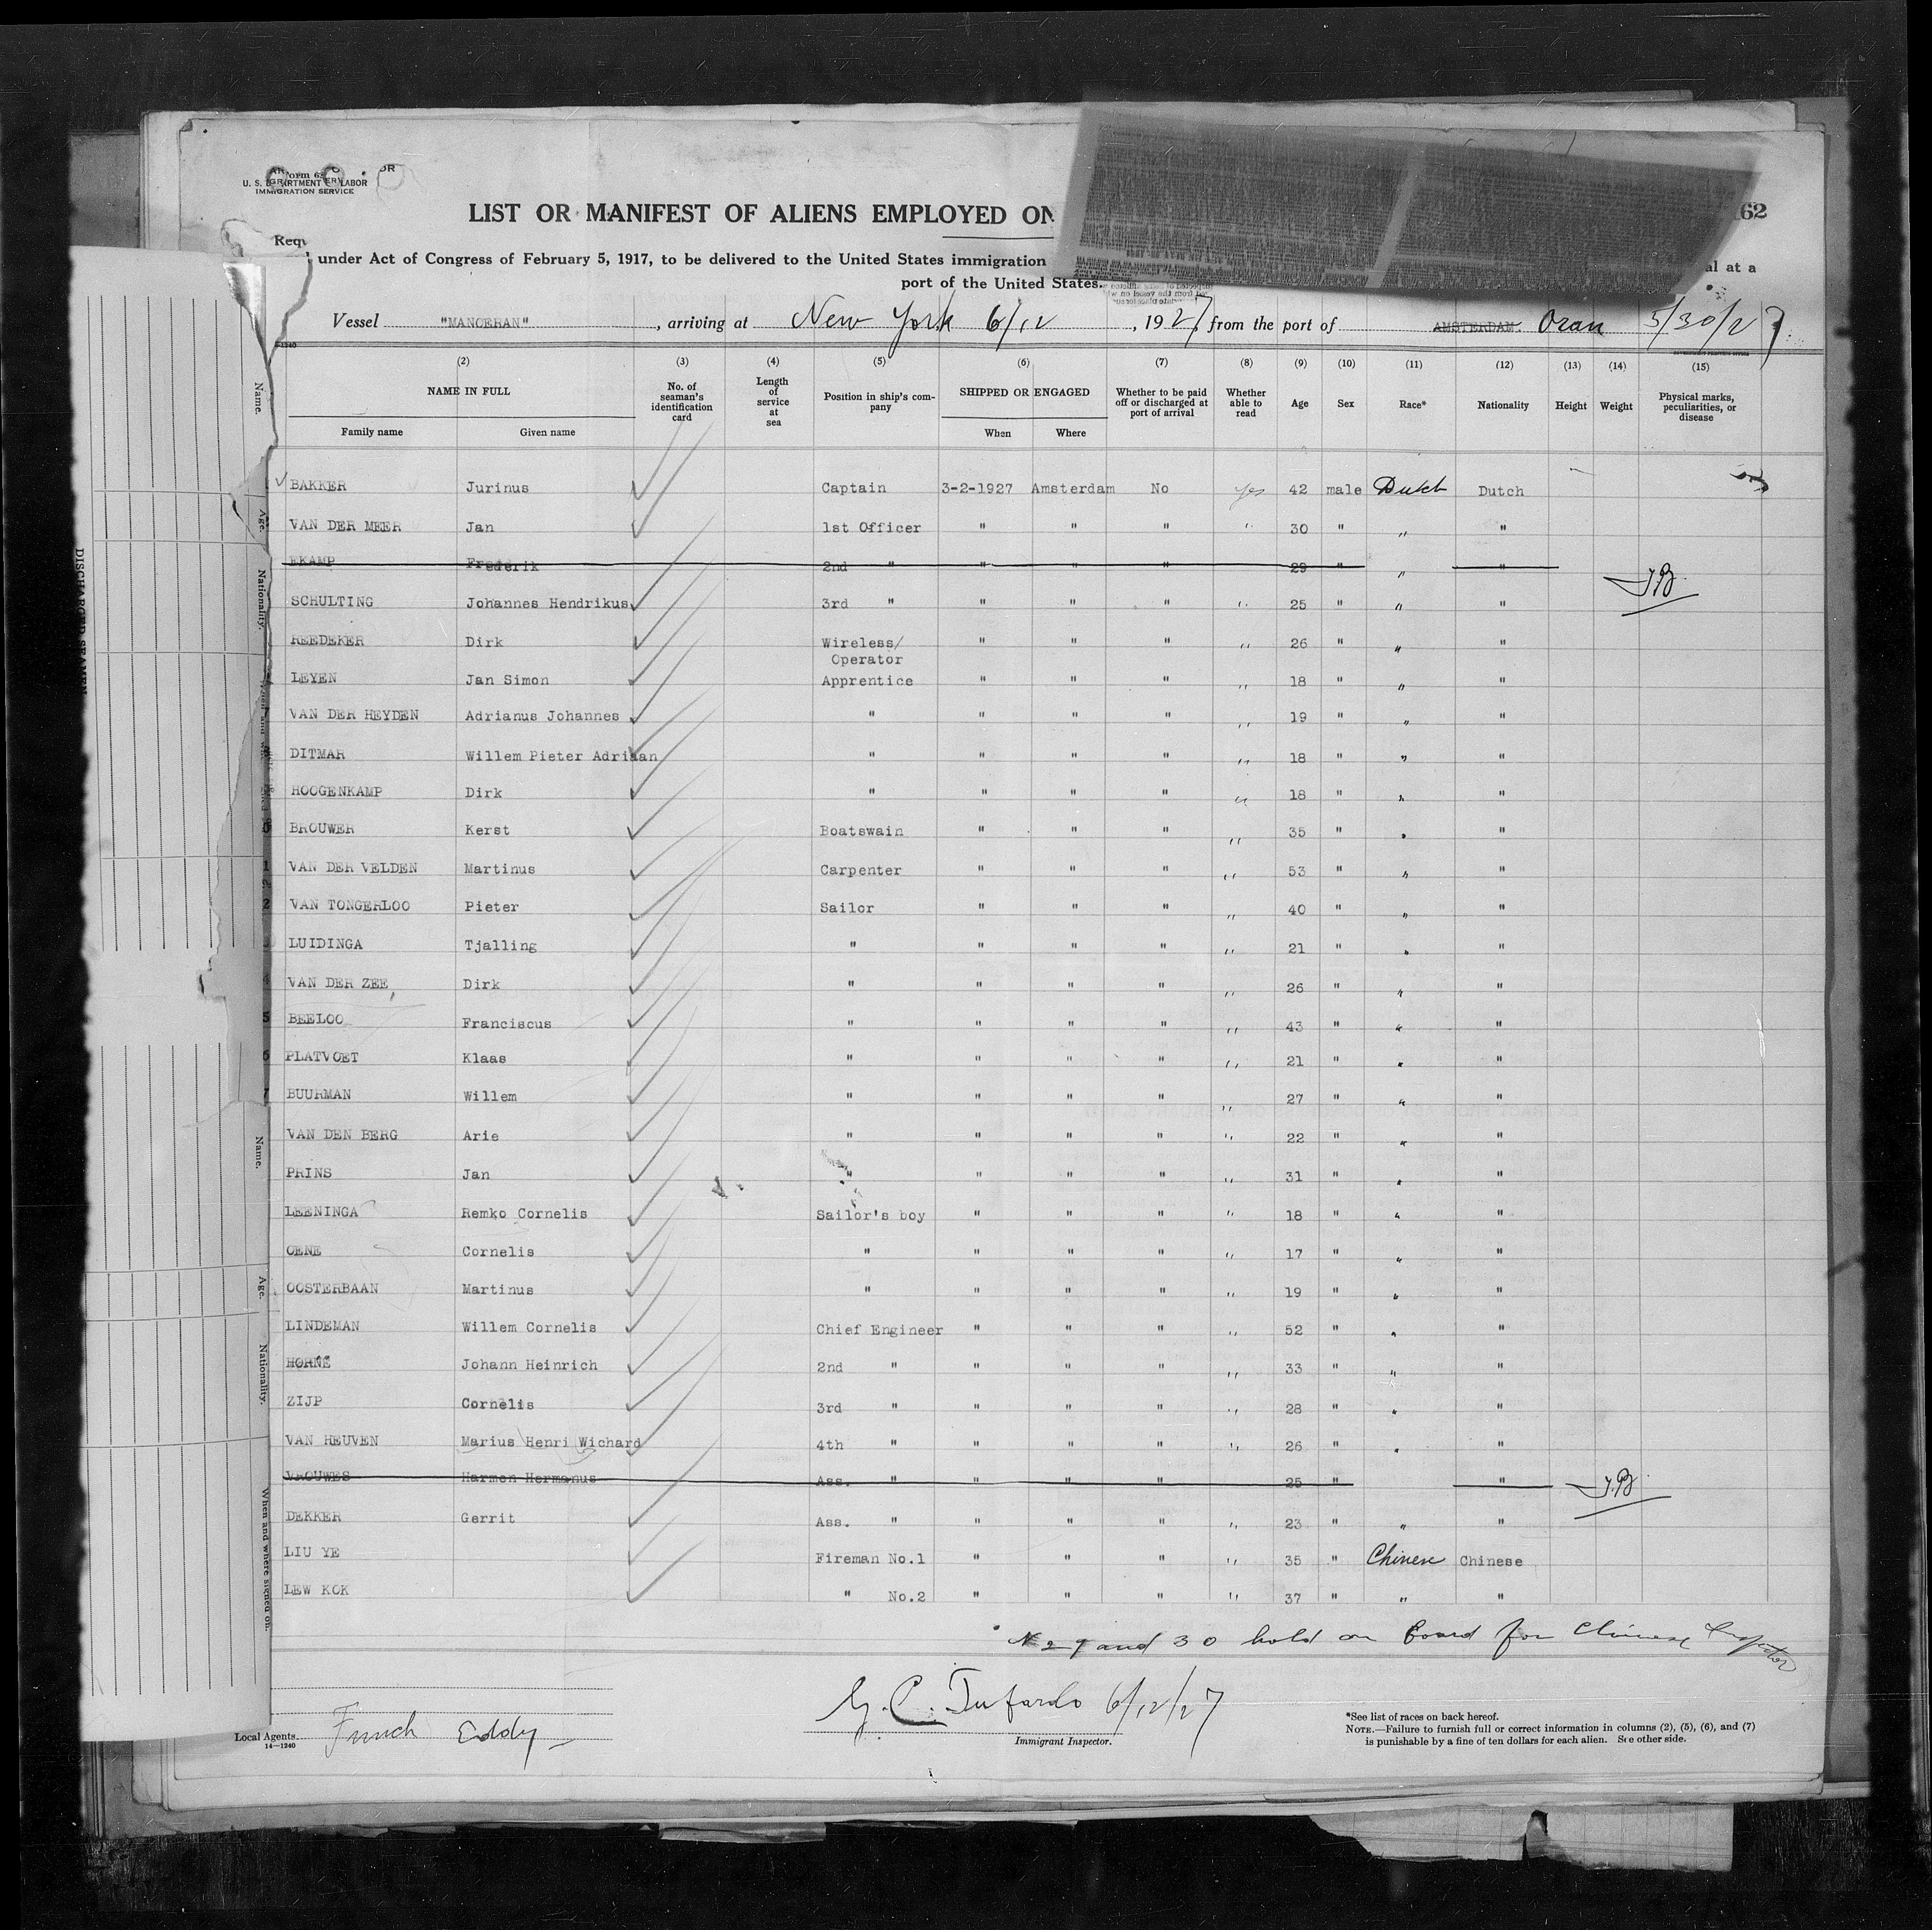 U. S. DEPARTMENT OF LABOR
IMMIGRATION SERVICE
62
LIST OR MANIFEST OF ALIENS EMPLOYED ON
under Act of Congress of February 5, 1917, to be delivered to the United States immigration al at a
port of the United States.
Vessel "MANOERAN", arriving at New York 6/12, 1927, from the port of AMSTERDAM. Oran 5/30/27
(2) (3) (4) (5) (6) (7) (8) (9) (10) (11) (12) (13) (14) (15)
NAME IN FULL No. of seaman's identification card Length of service at sea Position in ship's company SHIPPED OR ENGAGED Whether to be paid off or discharged at port of arrival Whether able to read Age Sex Race* Nationality Height Weight Physical marks, peculiarities, or disease
Family name Given name When Where
BAKKER Jurinus Captain 3-2-1927 Amsterdam No yes 42 male Dutch Dutch
VAN DER MEER Jan 1st Officer " " " " 30 " " "
EKAMP Frederik 2nd " " " " 29 " " " J.B
SCHULTING Johannes Hendrikus 3rd " " " " " 25 " " "
REEDEKER Dirk Wireless/ Operator " " " " 26 " " "
LEYEN Jan Simon Apprentice " " " " 18 " " "
VAN DER HEYDEN Adrianus Johannes " " " " " 19 " " "
DITMAR Willem Pieter Adriaan " " " " " 18 " " "
HOOGENKAMP Dirk " " " " " 18 " " "
BROUWER Kerst Boatswain " " " " 35 " " "
VAN DER VELDEN Martinus Carpenter " " " " 53 " " "
VAN TONGERLOO Pieter Sailor " " " " 40 " " "
LUIDINGA Tjalling " " " " " 21 " " "
VAN DER ZEE Dirk " " " " " 26 " " "
BEELOO Franciscus " " " " " 43 " " "
PLATVOET Klaas " " " " " 21 " " "
BUURMAN Willem " " " " " 27 " " "
VAN DEN BERG Arie " " " " " 22 " " "
PRINS Jan " " " " " 31 " " "
LEENINGA Remko Cornelis Sailor's boy " " " " 18 " " "
OENE Cornelis " " " " " 17 " " "
OOSTERBAAN Martinus " " " " " 19 " " "
LINDEMAN Willem Cornelis Chief Engineer " " " " 52 " " "
HORNE Johann Heinrich 2nd " " " " " 33 " " "
ZIJP Cornelis 3rd " " " " " 28 " " "
VAN HEUVEN Marius Henri Wichard 4th " " " " " 26 " " "
VROUWES Harmen Hermanus Ass. " " " " 25 " " J.B
DEKKER Gerrit Ass. " " " " " 23 " " "
LIU YE Fireman No.1 " " " " 35 " Chinese Chinese
LEW KOK " No.2 " " " " 37 " " "
N 29 and 30 hold on board for Chinese Inspector
6/12/27
Immigrant Inspector.
Local Agents Funch Eddy
14—1240
*See list of races on back hereof.
NOTE.—Failure to furnish full or correct information in columns (2), (5), (6), and (7)
is punishable by a fine of ten dollars for each alien. See other side.
DISCHARGED SEAMEN
Name.
Age.
Nationality.
Name.
Age.
Nationality.
When and where signed on.